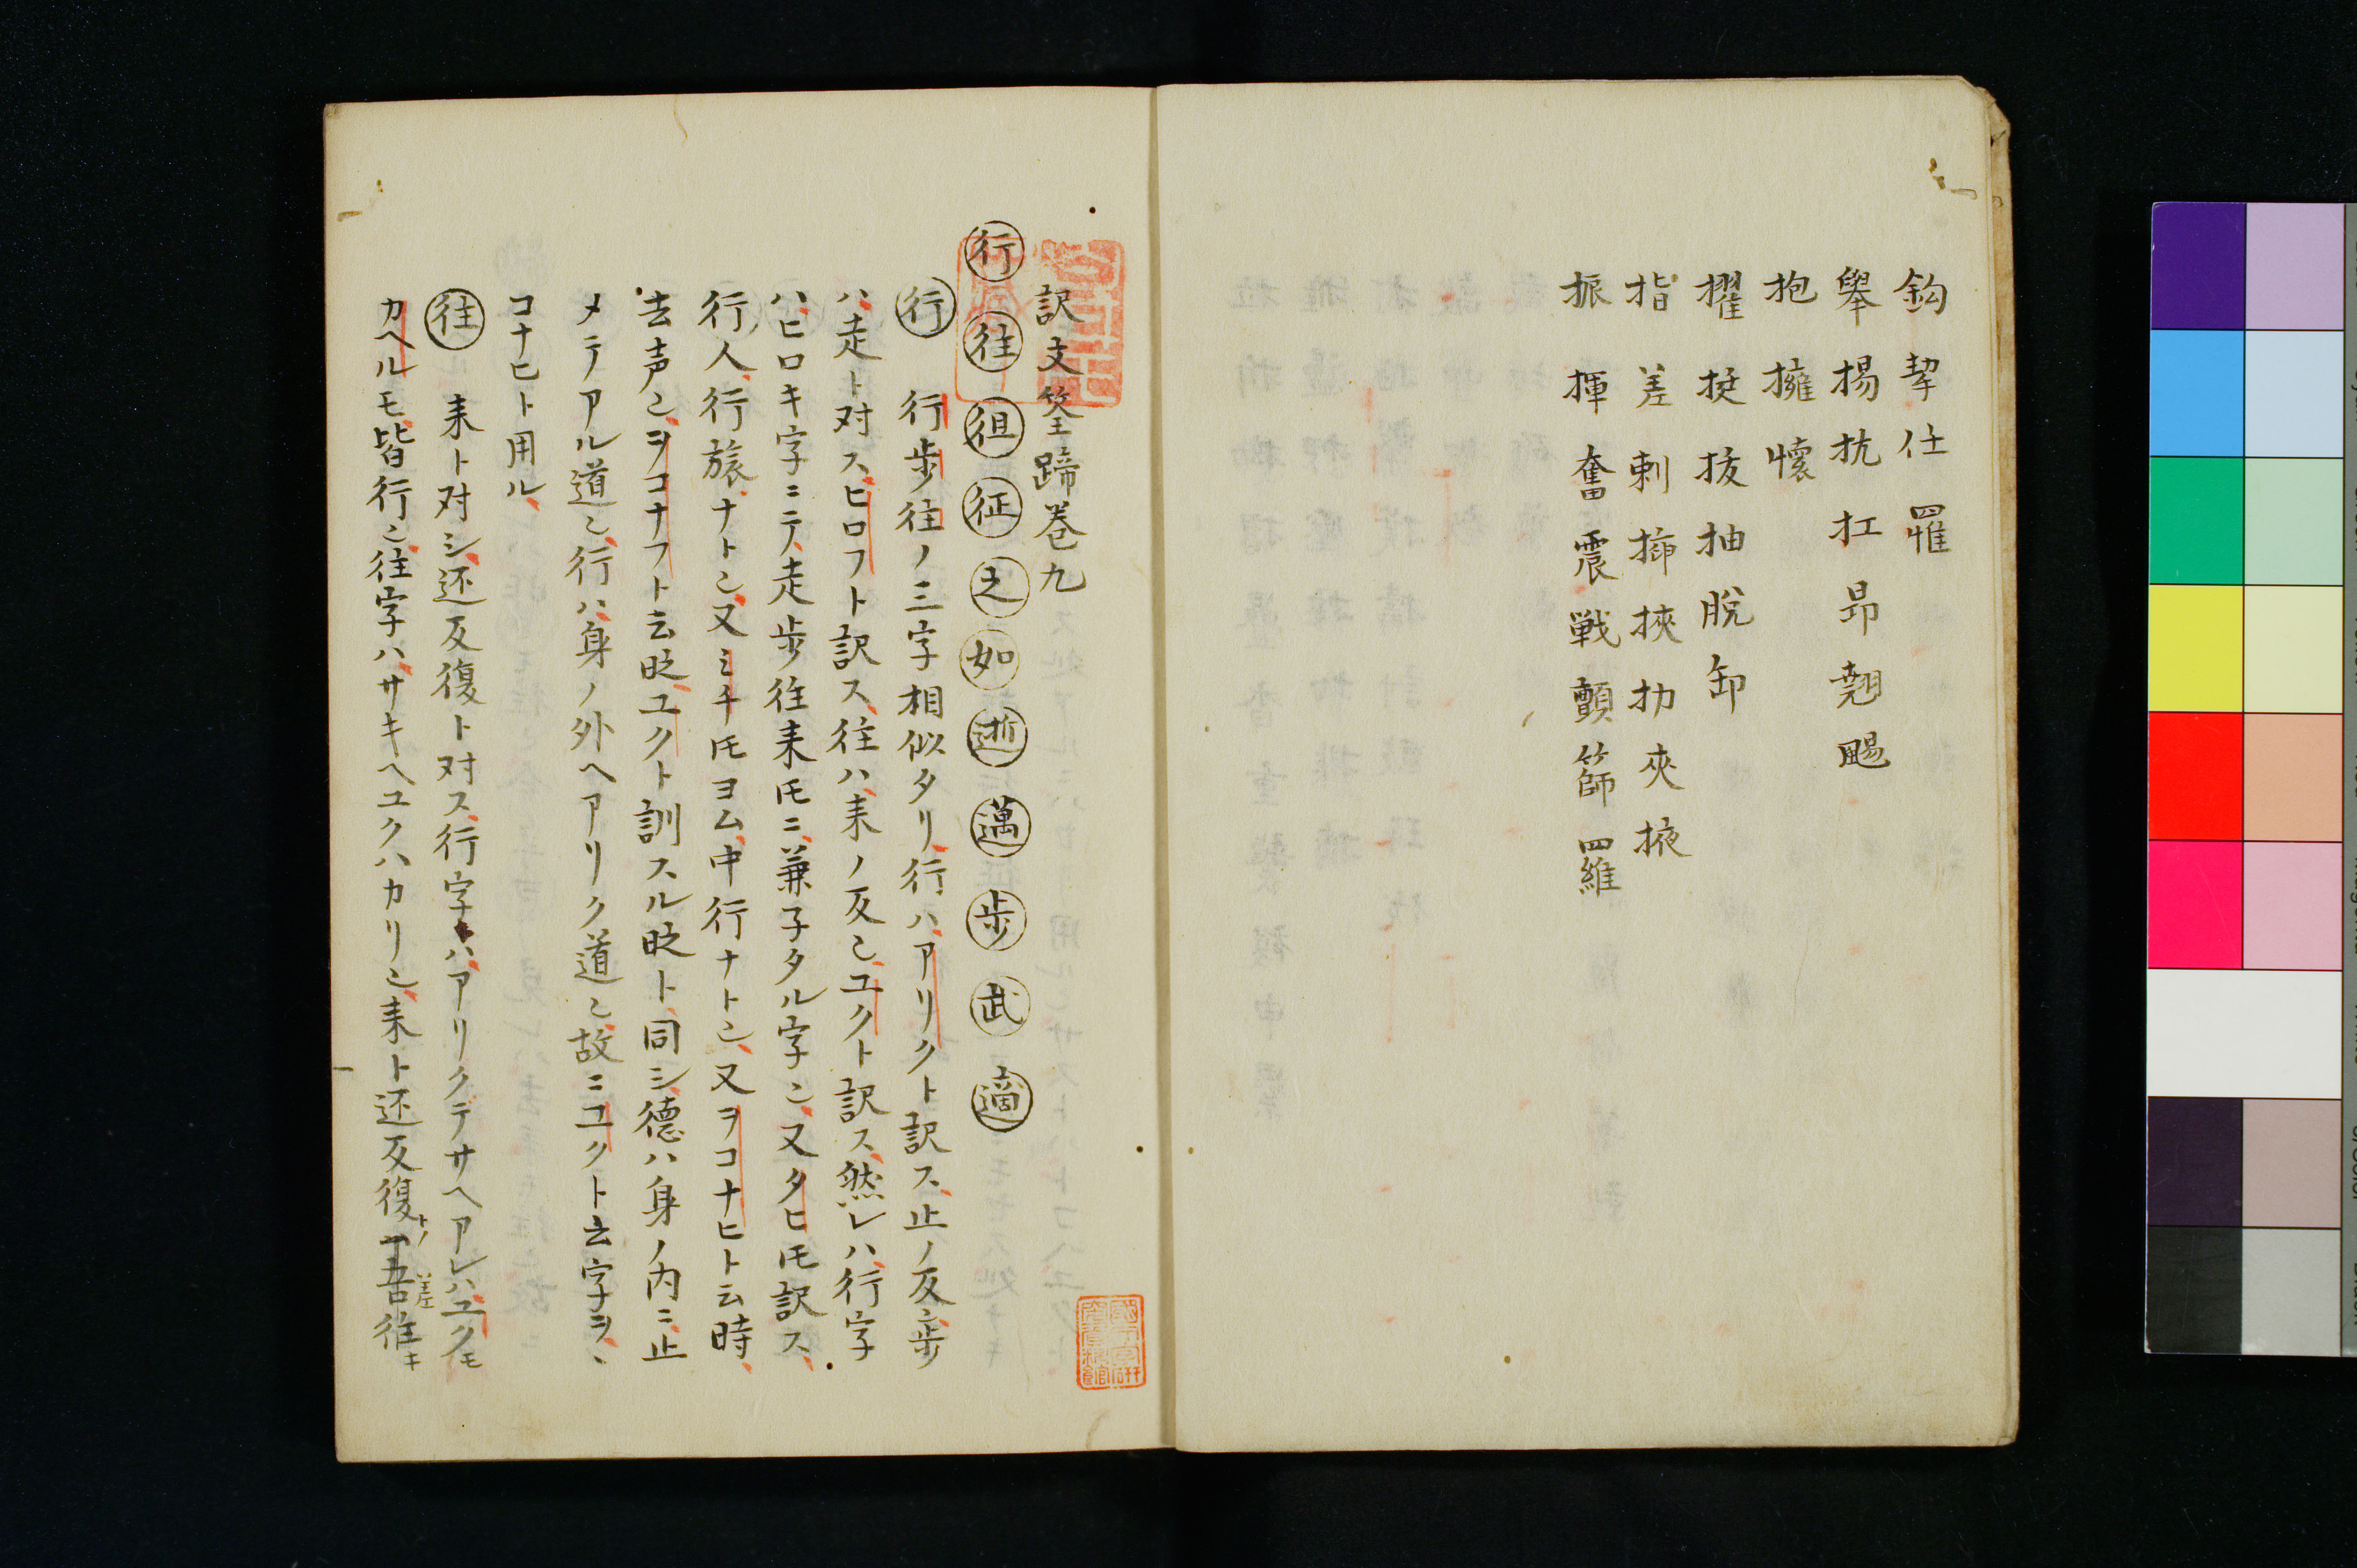 鈎 挈 仕 罹
擧 揚 抗 扛 昻 翹 颺
抱 擁 懷
擢 揠 拔 抽 脱 卸
指 差 刺 挿 挾 扐 夾 掖
振 揮 奮 震 戦 顫 篩 羅
訳文筌蹄巻九
行 往 徂 征 之 如 逝 邁 歩 武 適
行 行歩往ノ三字相似タリ行ハアリクト訳ス止ノ反歩
ハ走ト対スヒロフト訳ス往ハ来ノ反也ユクト訳ス然レハ行字
ハヒロキ字ニテ走歩往来トモニ兼子タル字也又タヒトモ訳ス
行人行旅ナト也又ミチトモヨム中行ナト也又ヲコナヒト云時
去声也ヲコナフト云時ユクト訓スル時ト同シ德ハ身ノ内ニ止
メテアル道也行ハ身ノ外ヘアリク道也故ニユクト云字ヲヽ
コナヒト用ル
往 来ト対シ还反復ト対ス行字ハアリクテサヘアレハユクモ
カヘルモ皆行也往字ハサキヘユクハカリ也来ト还反復トノ差吾往キ